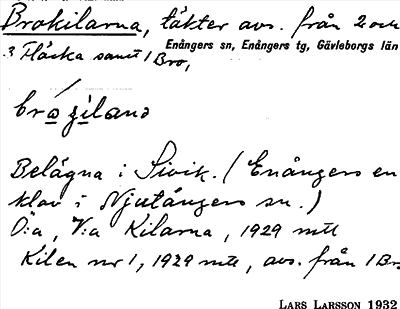 Brokilarna, täkter avs. från 2 och
Enångers sn, Enångers tg, Gävleborgs län
3 Fläcka samt 1 Bro,
Belägna i Sivik. (Enångers en
klav i Njutångers sn.)
Ö:a, V:a Kilarna, 1929 mtl
Kilen nr 1, 1929 mtl, avs. från 1 Bro
LARS LARSSON 1932